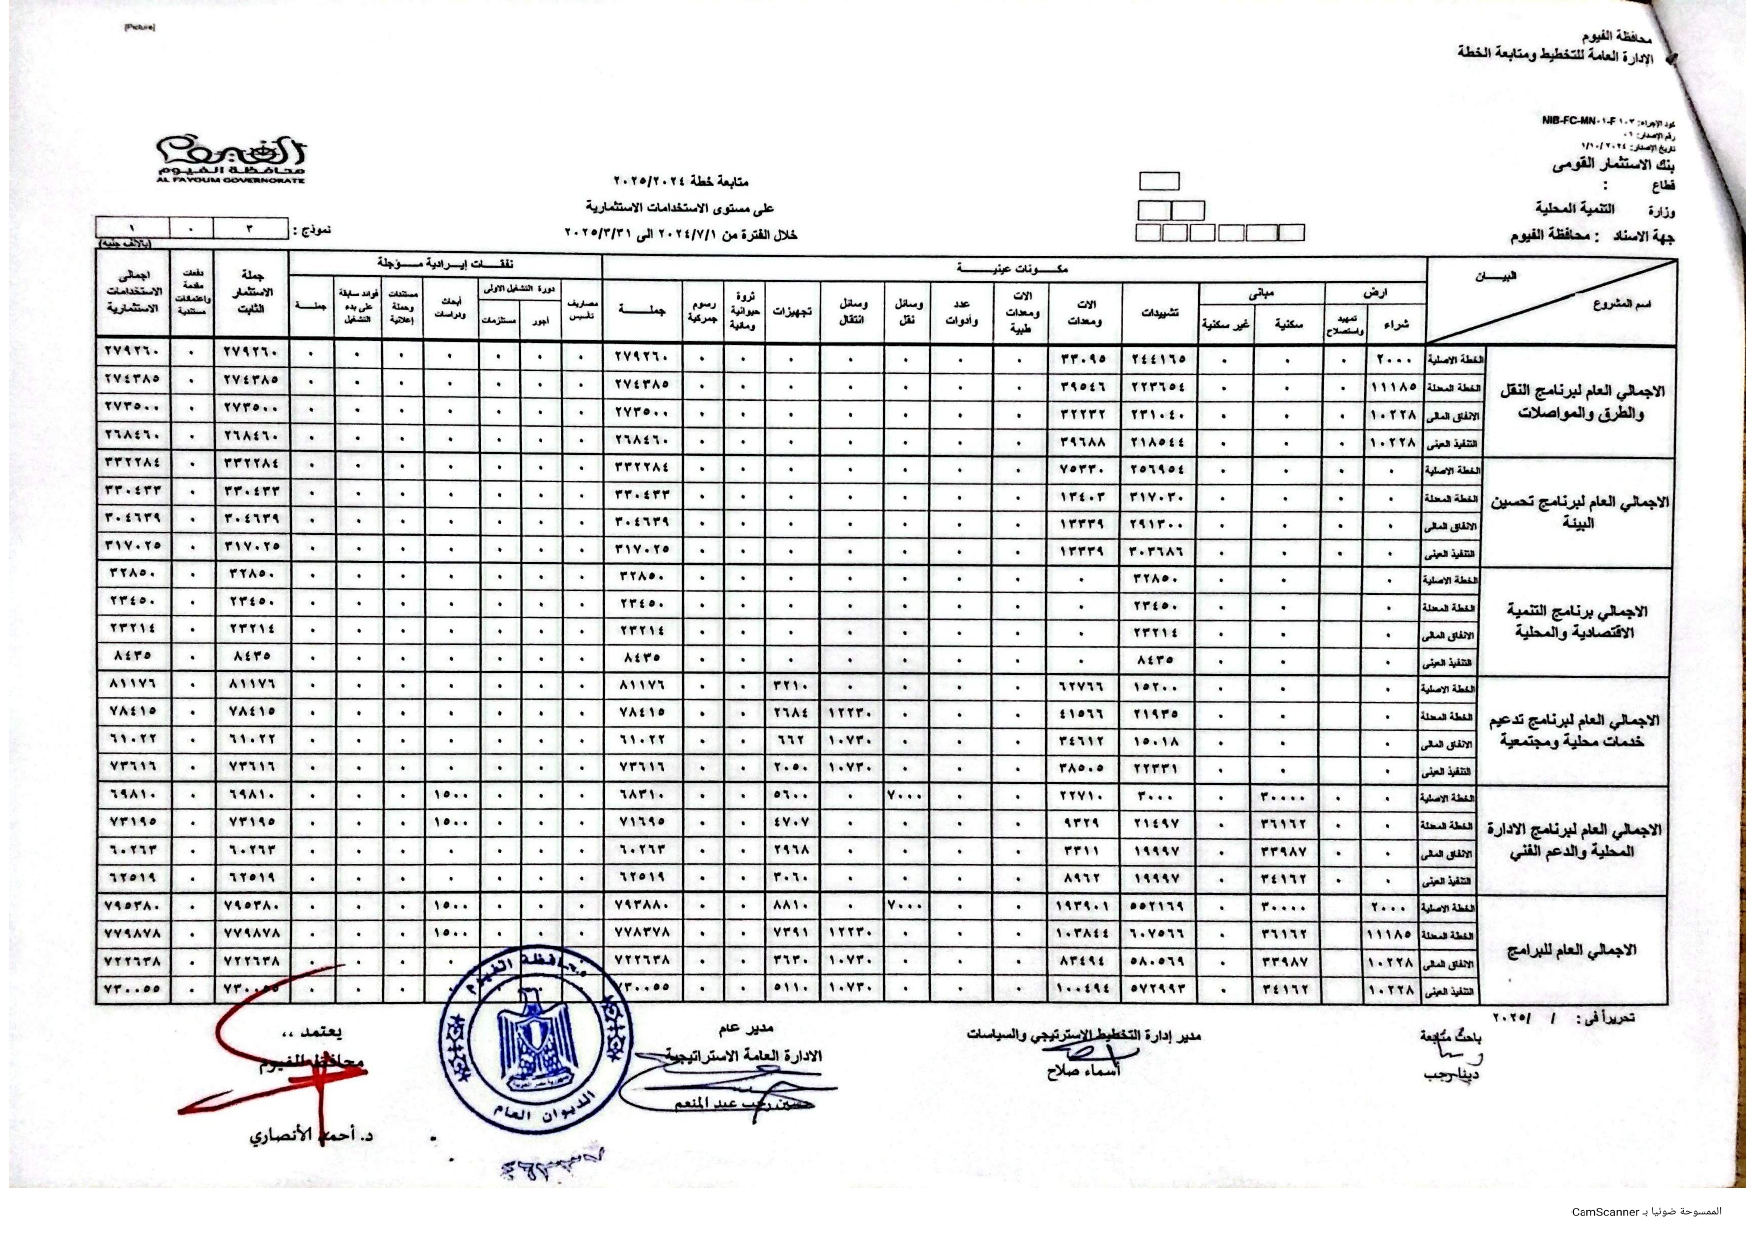 [Picture]
محافظة الفيوم
الإدارة العامة للتخطيط ومتابعة الخطة
كود الإجراء: NIB-FC-MN-٠١-F١٠٣
رقم الإصدار: ٠١
تاريخ الإصدار: ١/١٠/٢٠٢٤
بنك الاستثمار القومى
قطاع :
وزارة التنمية المحلية
جهة الاسناد : محافظة الفيوم
الفيوم
محافظة الفيوم
AL FAYOUM GOVERNORATE
متابعة خطة ٢٠٢٥/٢٠٢٤
على مستوى الاستخدامات الاستثمارية
خلال الفترة من ٢٠٢٤/٧/١ الى ٢٠٢٥/٣/٣١
نموذج : ٣ ٠ ١
(بالالف جنيه)
البيـــان
اسم المشروع
مكـــونات عينيـــة
نفقـــات إيــرادية مـــؤجلة
ارض
شراء
تمهيد واستصلاح
مبانى
سكنية
غير سكنية
تشييدات
الات ومعدات
الات ومعدات طبية
عدد وأدوات
وسائل نقل
وسائل انتقال
تجهيزات
ثروة حيوانية ومائية
رسوم جمركية
جملـــة
مصاريف تأسيس
دورة التشغيل الاولى
أجور
مستلزمات
أبحاث ودراسات
مستندات وحملة إعلانية
فوائد سابقة على بدء التشغيل
جملـــة
جملة الاستثمار الثابت
دفعات مقدمة واعتمادات مستندية
اجمالى الاستخدامات الاستثمارية
الاجمالي العام لبرنامج النقل والطرق والمواصلات
الخطة الاصلية ٢٠٠٠ ٠ ٠ ٠ ٢٤٤١٦٥ ٣٣٠٩٥ ٠ ٠ ٠ ٠ ٠ ٠ ٠ ٢٧٩٢٦٠ ٠ ٠ ٠ ٠ ٠ ٠ ٠ ٢٧٩٢٦٠ ٠ ٢٧٩٢٦٠
الخطة المعدلة ١١١٨٥ ٠ ٠ ٠ ٢٢٣٦٥٤ ٣٩٥٤٦ ٠ ٠ ٠ ٠ ٠ ٠ ٠ ٢٧٤٣٨٥ ٠ ٠ ٠ ٠ ٠ ٠ ٠ ٢٧٤٣٨٥ ٠ ٢٧٤٣٨٥
الانفاق المالى ١٠٢٢٨ ٠ ٠ ٠ ٢٣١٠٤٠ ٣٢٢٣٢ ٠ ٠ ٠ ٠ ٠ ٠ ٠ ٢٧٣٥٠٠ ٠ ٠ ٠ ٠ ٠ ٠ ٠ ٢٧٣٥٠٠ ٠ ٢٧٣٥٠٠
التنفيذ العينى ١٠٢٢٨ ٠ ٠ ٠ ٢١٨٥٤٤ ٣٩٦٨٨ ٠ ٠ ٠ ٠ ٠ ٠ ٠ ٢٦٨٤٦٠ ٠ ٠ ٠ ٠ ٠ ٠ ٠ ٢٦٨٤٦٠ ٠ ٢٦٨٤٦٠
الاجمالي العام لبرنامج تحسين البيئة
الخطة الاصلية ٠ ٠ ٠ ٠ ٢٥٦٩٥٤ ٧٥٣٣٠ ٠ ٠ ٠ ٠ ٠ ٠ ٠ ٣٣٢٢٨٤ ٠ ٠ ٠ ٠ ٠ ٠ ٠ ٣٣٢٢٨٤ ٠ ٣٣٢٢٨٤
الخطة المعدلة ٠ ٠ ٠ ٠ ٣١٧٠٣٠ ١٣٤٠٣ ٠ ٠ ٠ ٠ ٠ ٠ ٠ ٣٣٠٤٣٣ ٠ ٠ ٠ ٠ ٠ ٠ ٠ ٣٣٠٤٣٣ ٠ ٣٣٠٤٣٣
الانفاق المالى ٠ ٠ ٠ ٠ ٢٩١٣٠٠ ١٣٣٣٩ ٠ ٠ ٠ ٠ ٠ ٠ ٠ ٣٠٤٦٣٩ ٠ ٠ ٠ ٠ ٠ ٠ ٠ ٣٠٤٦٣٩ ٠ ٣٠٤٦٣٩
التنفيذ العينى ٠ ٠ ٠ ٠ ٣٠٣٦٨٦ ١٣٣٣٩ ٠ ٠ ٠ ٠ ٠ ٠ ٠ ٣١٧٠٢٥ ٠ ٠ ٠ ٠ ٠ ٠ ٠ ٣١٧٠٢٥ ٠ ٣١٧٠٢٥
الاجمالي برنامج التنمية الاقتصادية والمحلية
الخطة الاصلية ٠ ٠ ٠ ٣٢٨٥٠ ٠ ٠ ٠ ٠ ٠ ٠ ٠ ٠ ٣٢٨٥٠ ٠ ٠ ٠ ٠ ٠ ٠ ٠ ٣٢٨٥٠ ٠ ٣٢٨٥٠
الخطة المعدلة ٠ ٠ ٠ ٢٣٤٥٠ ٠ ٠ ٠ ٠ ٠ ٠ ٠ ٠ ٢٣٤٥٠ ٠ ٠ ٠ ٠ ٠ ٠ ٠ ٢٣٤٥٠ ٠ ٢٣٤٥٠
الانفاق المالى ٠ ٠ ٠ ٢٣٢١٤ ٠ ٠ ٠ ٠ ٠ ٠ ٠ ٠ ٢٣٢١٤ ٠ ٠ ٠ ٠ ٠ ٠ ٠ ٢٣٢١٤ ٠ ٢٣٢١٤
التنفيذ العينى ٠ ٠ ٠ ٨٤٣٥ ٠ ٠ ٠ ٠ ٠ ٠ ٠ ٠ ٨٤٣٥ ٠ ٠ ٠ ٠ ٠ ٠ ٠ ٨٤٣٥ ٠ ٨٤٣٥
الاجمالي العام لبرنامج تدعيم خدمات محلية ومجتمعية
الخطة الاصلية ٠ ٠ ٠ ١٥٢٠٠ ٦٢٧٦٦ ٠ ٠ ٠ ٠ ٣٢١٠ ٠ ٠ ٨١١٧٦ ٠ ٠ ٠ ٠ ٠ ٠ ٠ ٨١١٧٦ ٠ ٨١١٧٦
الخطة المعدلة ٠ ٠ ٠ ٢١٩٣٥ ٤١٥٦٦ ٠ ٠ ٠ ١٢٢٣٠ ٢٦٨٤ ٠ ٠ ٧٨٤١٥ ٠ ٠ ٠ ٠ ٠ ٠ ٠ ٧٨٤١٥ ٠ ٧٨٤١٥
الانفاق المالى ٠ ٠ ٠ ١٥٠١٨ ٣٤٦١٢ ٠ ٠ ٠ ١٠٧٣٠ ٦٦٢ ٠ ٠ ٦١٠٢٢ ٠ ٠ ٠ ٠ ٠ ٠ ٠ ٦١٠٢٢ ٠ ٦١٠٢٢
التنفيذ العينى ٠ ٠ ٠ ٢٢٣٣١ ٣٨٥٠٥ ٠ ٠ ٠ ١٠٧٣٠ ٢٠٥٠ ٠ ٠ ٧٣٦١٦ ٠ ٠ ٠ ٠ ٠ ٠ ٠ ٧٣٦١٦ ٠ ٧٣٦١٦
الاجمالي العام لبرنامج الادارة المحلية والدعم الفني
الخطة الاصلية ٠ ٠ ٣٠٠٠٠ ٠ ٣٠٠٠ ٢٢٧١٠ ٠ ٠ ٧٠٠٠ ٠ ٥٦٠٠ ٠ ٠ ٦٨٣١٠ ٠ ٠ ٠ ١٥٠٠ ٠ ٠ ٠ ٦٩٨١٠ ٠ ٦٩٨١٠
الخطة المعدلة ٠ ٠ ٣٦١٦٢ ٠ ٢١٤٩٧ ٩٣٢٩ ٠ ٠ ٠ ٠ ٤٧٠٧ ٠ ٠ ٧١٦٩٥ ٠ ٠ ٠ ١٥٠٠ ٠ ٠ ٠ ٧٣١٩٥ ٠ ٧٣١٩٥
الانفاق المالى ٠ ٠ ٣٣٩٨٧ ٠ ١٩٩٩٧ ٣٣١١ ٠ ٠ ٠ ٠ ٢٩٦٨ ٠ ٠ ٦٠٢٦٣ ٠ ٠ ٠ ٠ ٠ ٠ ٠ ٦٠٢٦٣ ٠ ٦٠٢٦٣
التنفيذ العينى ٠ ٠ ٣٤١٦٢ ٠ ١٩٩٩٧ ٨٩٦٢ ٠ ٠ ٠ ٠ ٣٠٦٠ ٠ ٠ ٦٢٥١٩ ٠ ٠ ٠ ٠ ٠ ٠ ٠ ٦٢٥١٩ ٠ ٦٢٥١٩
الاجمالي العام للبرامج
الخطة الاصلية ٢٠٠٠ ٣٠٠٠٠ ٠ ٥٥٢١٦٩ ١٩٣٩٠١ ٠ ٠ ٧٠٠٠ ٠ ٨٨١٠ ٠ ٠ ٧٩٣٨٨٠ ٠ ٠ ٠ ١٥٠٠ ٠ ٠ ٠ ٧٩٥٣٨٠ ٠ ٧٩٥٣٨٠
الخطة المعدلة ١١١٨٥ ٣٦١٦٢ ٠ ٦٠٧٥٦٦ ١٠٣٨٤٤ ٠ ٠ ٠ ١٢٢٣٠ ٧٣٩١ ٠ ٠ ٧٧٨٣٧٨ ٠ ٠ ٠ ١٥٠٠ ٠ ٠ ٠ ٧٧٩٨٧٨ ٠ ٧٧٩٨٧٨
الانفاق المالى ١٠٢٢٨ ٣٣٩٨٧ ٠ ٥٨٠٥٦٩ ٨٣٤٩٤ ٠ ٠ ٠ ١٠٧٣٠ ٣٦٣٠ ٠ ٠ ٧٢٢٦٣٨ ٠ ٠ ٠ ٠ ٠ ٧٢٢٦٣٨ ٠ ٧٢٢٦٣٨
التنفيذ العينى ١٠٢٢٨ ٣٤١٦٢ ٠ ٥٧٢٩٩٣ ١٠٠٤٩٤ ٠ ٠ ٠ ١٠٧٣٠ ٥١١٠ ٠ ٠ ٧٣٠٠٥٥ ٠ ٠ ٠ ٧٣٠٠٥٥ ٠ ٧٣٠٠٥٥
تحريراً فى : / /٢٠٢٥
باحث متابعة
دينا رجب
مدير إدارة التخطيط الاسترتيجي والسياسات
أسماء صلاح
مدير عام
الادارة العامة الاستراتيجية
حسين رجب عبد المنعم
محافظة الفيوم
الديوان العام
يعتمد ،،
محافظ الفيوم
د. أحمد الأنصاري
الممسوحة ضوئيا بـ CamScanner